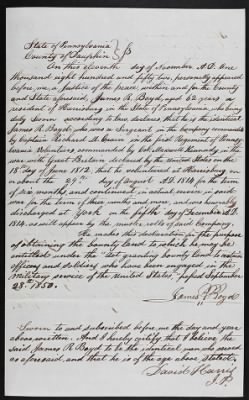 State of Pennsylvania
County of Dauphin } ss
On this eleventh day of November A.D. One
thousand eight hundred and fifty two, personally appeared
before me, a Justice of the peace within and for the County
and State aforesaid, James R. Boyd, aged 62 years a
resident of Harrisburg in the State of Pennsylvania who being
duly sworn according to law, declares that he is the identical
James R. Boyd, who was a Sergeant in the company commanded
by Captain Richard M. Crain in the first Regiment of Pennsyl-
vania Volunteers commanded by Col. Maxwell Kennedy in the
war with Great Britain declared by the United States on the
18th day of June 1812, that he volunteered at Harrisburg on
or about the 27th day of August A.D. 1814 for the term
of six months, and continued in actual service in said
war for the term of three months and more, and was honorably
discharged at York on the fifth day of December A.D.
1814, as will appear by the muster rolls of said Company.
He makes this declaration for the purpose
of obtaining the bounty land to which he may be
entitled under the "act granting bounty land to certain
officers and soldiers who have been engaged in the
military service of the United States," passed September
28th 1850.
James R Boyd
Sworn to and subscribed before me the day and year
above written. And I hereby certify, that I believe the
said James R Boyd to be the identical man who served
as aforesaid, and that he is of the age above stated.
David Harris
J. P.